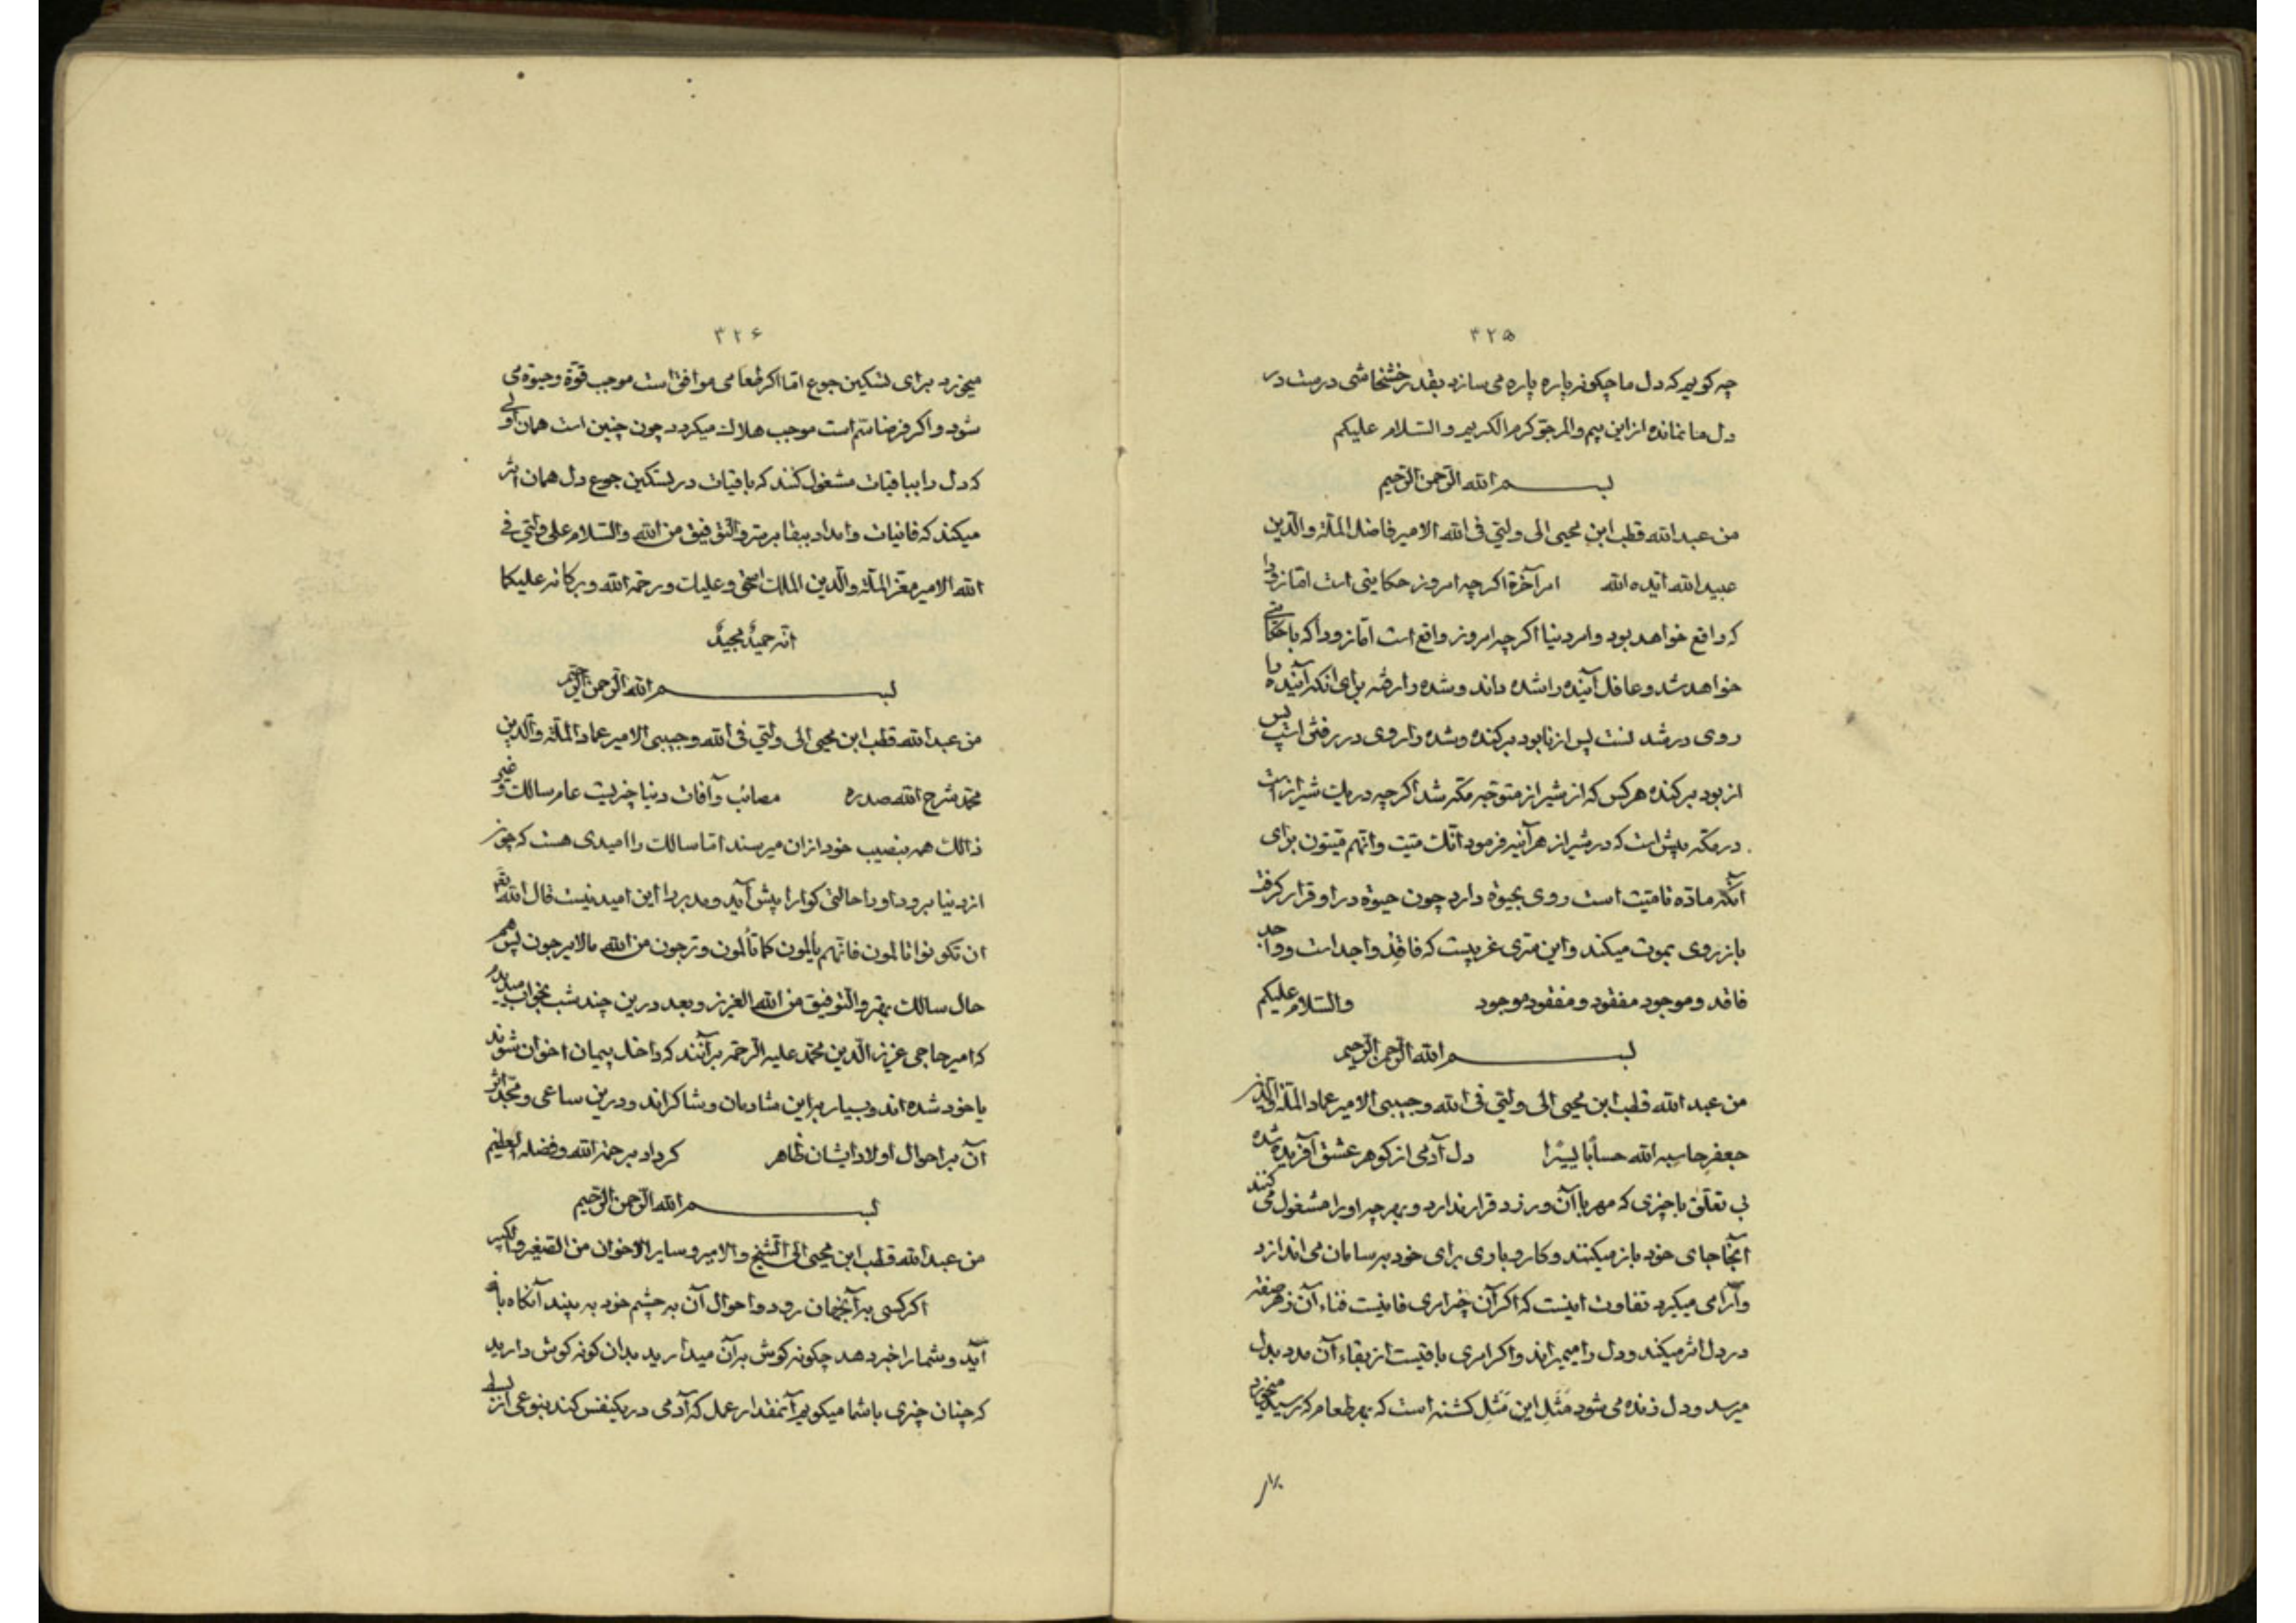 ۳۲۵
چه کویم که دل ما چکونه پاره پاره می سازد بقدر خشخاشی درست در
دل ما نمانده از این بیم والمرجو کرم الکریم والسّلام علیکم
بسم الله الرّحمن الرّحیم
من عبد الله قطب ابن محیی الی ولیّی فی الله الامیر فاضل الملّة والدّین
عبید الله ایّده الله امر آخرة اکرچه امروز حکایتی است امّا زود
که واقع خواهد بود وامر دنیا اکرچه امروز واقع است امّا زودا که با حکایتی
خواهد شد وعاقل آینده را شده داند وشده را رفته برای انکه آینده را
روی در شد نست پس از نابود برکنده وشده را روی در رفتن است پس
از بود برکنده هرکس که از شیراز متوجّه مکّه شد اکرچه در شیراز است
در مکّه بیش است که در شیراز هر آینه فرمود انّک میّت وانّهم میّتون برای
آنکه مادّه تا میّت است روی بحیوة دارد چون حیوة در او قرار کرفت
باز روی بموت میکند واین سرّی غریبست که فاقد واجد است وواجد
فاقد وموجود مفقود ومفقود موجود والسّلام علیکم
بسم الله الرّحمن الرّحیم
من عبد الله قطب ابن محیی الی ولیّی فی الله وحبیبی الامیر عماد الملّة والدّین
جعفر حاسبه الله حساباً یسیرًا دل آدمی از کوهر عشق آفریده شده
بی تعلّق با چیزی که مهر با آن ورزد قرار ندارد وبهر چه او را مشغول می کنند
آنجا جای خود باز میکند وکار وباری برای خود بر سامان می اندازد
وآرامی میکیرد تفاوت اینست که اکر آن چیز امری فانیست فناء آن
در دل اثر میکند ودل را میمیراند واکر امری باقیست از بقاء آن مدد بدل
میرسد ودل زنده می شود مَثَل این مَثَل کشنه است که بهر طعام که رسید میخورد
۳۲۶
میخورد برای تسکین جوع امّا اکر طعامی موافق است موجب قوّة وحیوة می
شود واکر فرضا سمّ است موجب هلاک میکردد چون چنین است همان اولی
که دل را بباقیات مشغول کنند که باقیات در تسکین جوع دل همان اثر
میکند که فانیات وامداد ببقا بر سر والتّوفیق من الله والسّلام علی ولیّی فی
الله الامیر معزّ الملّة والدّین الملک وعلیک ورحمة الله وبرکاته علیکما
انّه حمیدٌ مجیدٌ
بسم الله الرّحمن الرّحیم
من عبد الله قطب ابن محیی الی ولیّی فی الله وحبیبی الامیر عماد الملّة والدّین
محمّد شرح الله صدره مصائب وآفات دنیا چیزیست عام سالک وغیر
ذالک همه بنصیب خود از ان میرسند امّا سالک را امیدی هست که چون
از دنیا برود او را حالتی کوارا پیش آید ومدبر را این امید نیست قال الله تعم
ان تکونوا تألمون فانّهم یألمون کما تألمون وترجون من الله مالا یرجون پس هم
حال سالک بهتر والتّوفیق من الله العزیز وبعد درین چند شب بخواب میدیدم
که امیر حاجی عزیز الدّین محمّد علیه الرّحمه برآنند که داخل پیمان اخوان شوند
یا خود شده اند وبسیار براین شادمان وشاکراند ودرین ساعی ومجدّ اثر
آن بر احوال اولاد ایشان ظاهر کرداد برحمة الله وفضله العظیم
بسم الله الرّحمن الرّحیم
من عبد الله قطب ابن محیی الی الشیخ والامیر وسایر الاخوان من الصّغیر والکبیر
اکر کسی به آنجهان رود واحوال آن به چشم خود به بیند آنکاه باز
آید وشما را خبر دهد چکونه کوش برآن میدارید بدان کونه کوش دارید
که چنان چیزی با شما میکویم آنمقدار عمل که آدمی در یکنفس کند بنوعی از